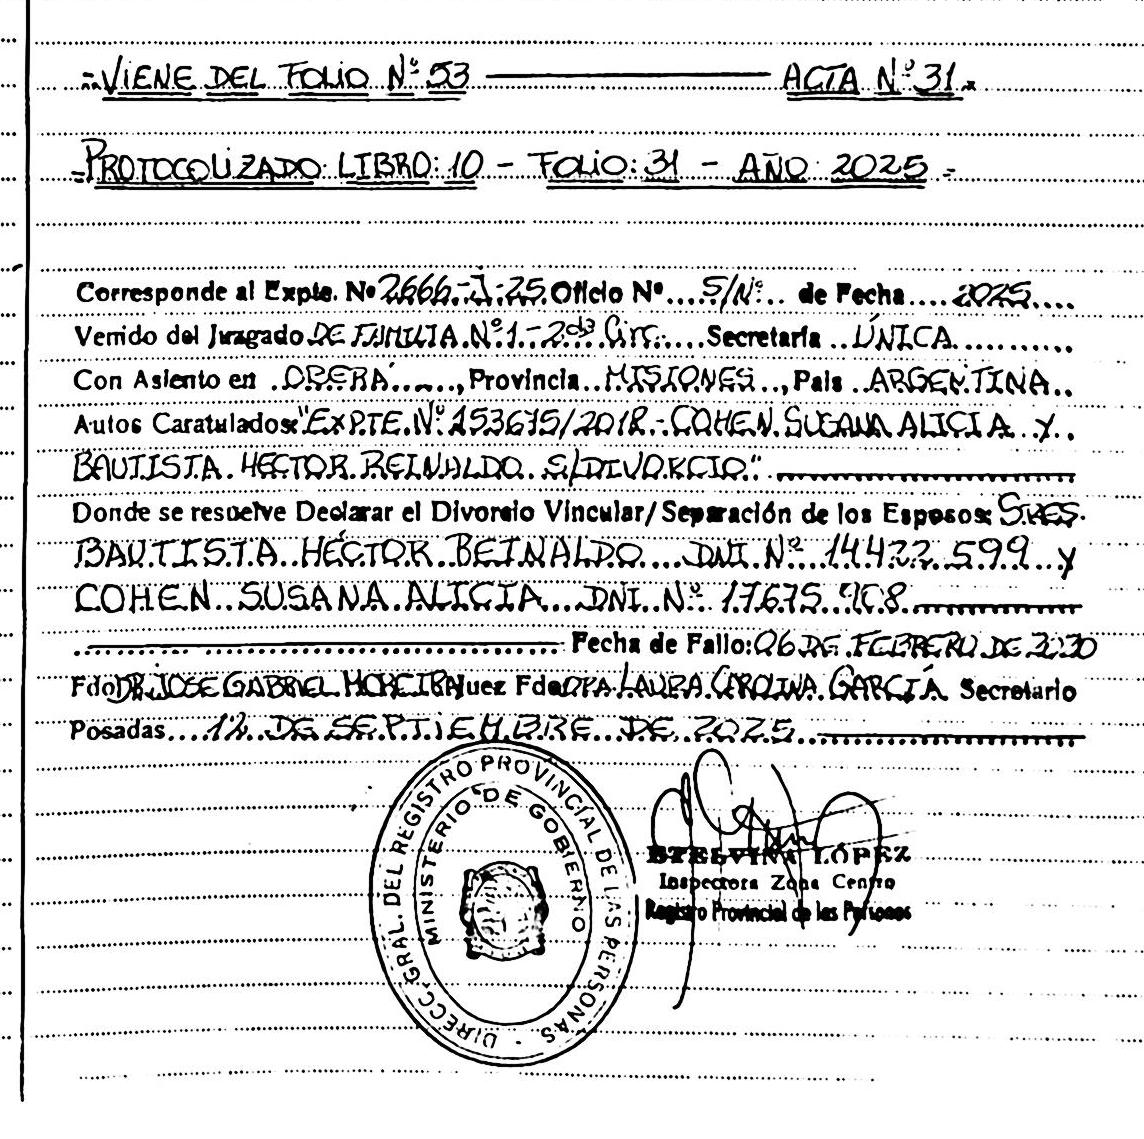 =VIENE DEL FOLIO Nº 53 ACTA Nº 31.
=PROTOCOLIZADO: LIBRO: 10 - FOLIO: 31 - AÑO: 2025=
Corresponde al Expte. Nº 2666-J-25 Oficio Nº....S/Nº.. de Fecha....2025....
Venido del Juzgado DE FAMILIA Nº1-2da Circ.....Secretaría ..ÚNICA..........
Con Asiento en .OBERÁ......, Provincia..MISIONES.., Pais ..ARGENTINA..
Autos Caratulados: "EXPTE. Nº 153675/2018.-COHEN SUSANA ALICIA y.
BAUTISTA HECTOR REINALDO S/DIVORCIO."
Donde se resuelve Declarar el Divorcio Vincular/Separación de los Esposos: SRES.
BAUTISTA HÉCTOR REINALDO DNI Nº 14.422.599 y
COHEN SUSANA ALICIA DNI Nº 17.675.908
Fecha de Fallo: 06 DE FEBRERO DE 2020
Fdo DR. JOSE GABRIEL MOREIRA Juez Fdo DRA. LAURA CAROLINA GARCÍA Secretario
Posadas....12 DE SEPTIEMBRE DE 2025
DIRECC. GRAL. DEL REGISTRO PROVINCIAL DE LAS PERSONAS -
MINISTERIO DE GOBIERNO
ETELVINA LÓPEZ
Inspectora Zona Centro
Registro Provincial de las Personas